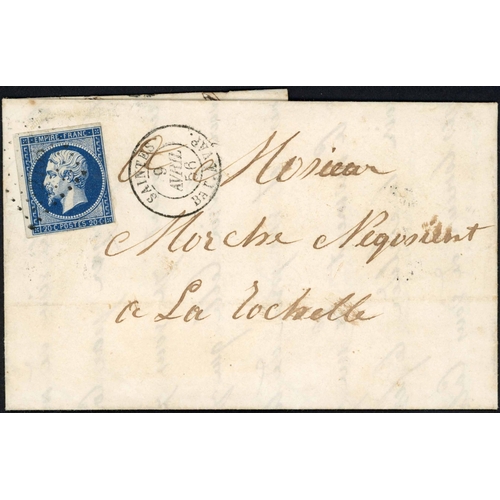 EMPIRE FRANC
20 C POSTES 20 C
9
AVRIL
56
A Monsieur
Morche Négosient
a La rochelle